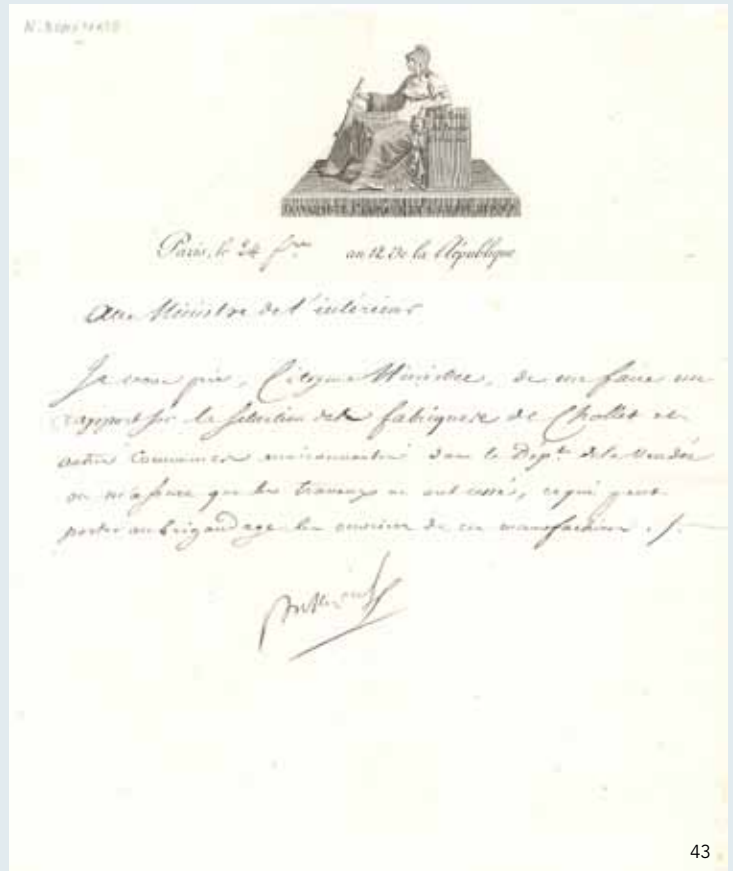 N. BONAPARTE
BONAPARTE 1er CONSUL DE LA RÉPUBLIQUE
Paris, le 24 f.re an 12 de la République
Au Ministre de l'intérieur
Je vous prie, Citoyen Ministre, de me faire un
rapport sur la situation des fabriques de Chollet et
autres communes environnantes dans le Dep.t de la Vendée
on m'assure que les travaux ont cessé, ce qui peut
porter au brigandage les ouvriers de ces manufactures ./.
Bonaparte
43